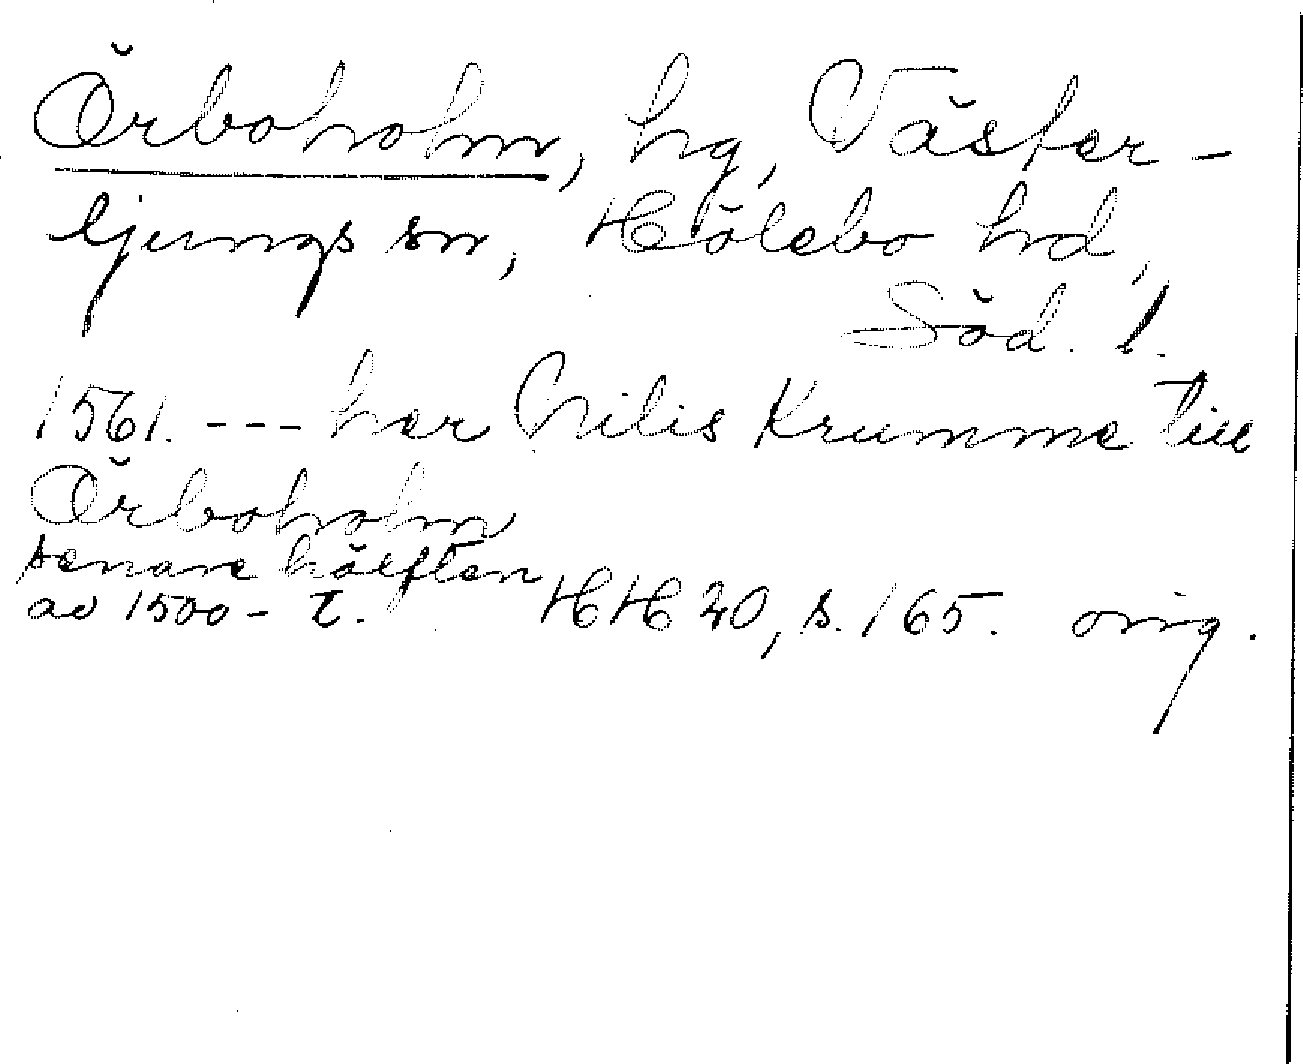 Örboholm, hg, Väster-
ljungs sn, Hölebo hd,
Söd. l.
1561. --- her Nilis Krumme till
Örboholm
senare hälften
av 1500-t. HH 20, s. 165. orig.